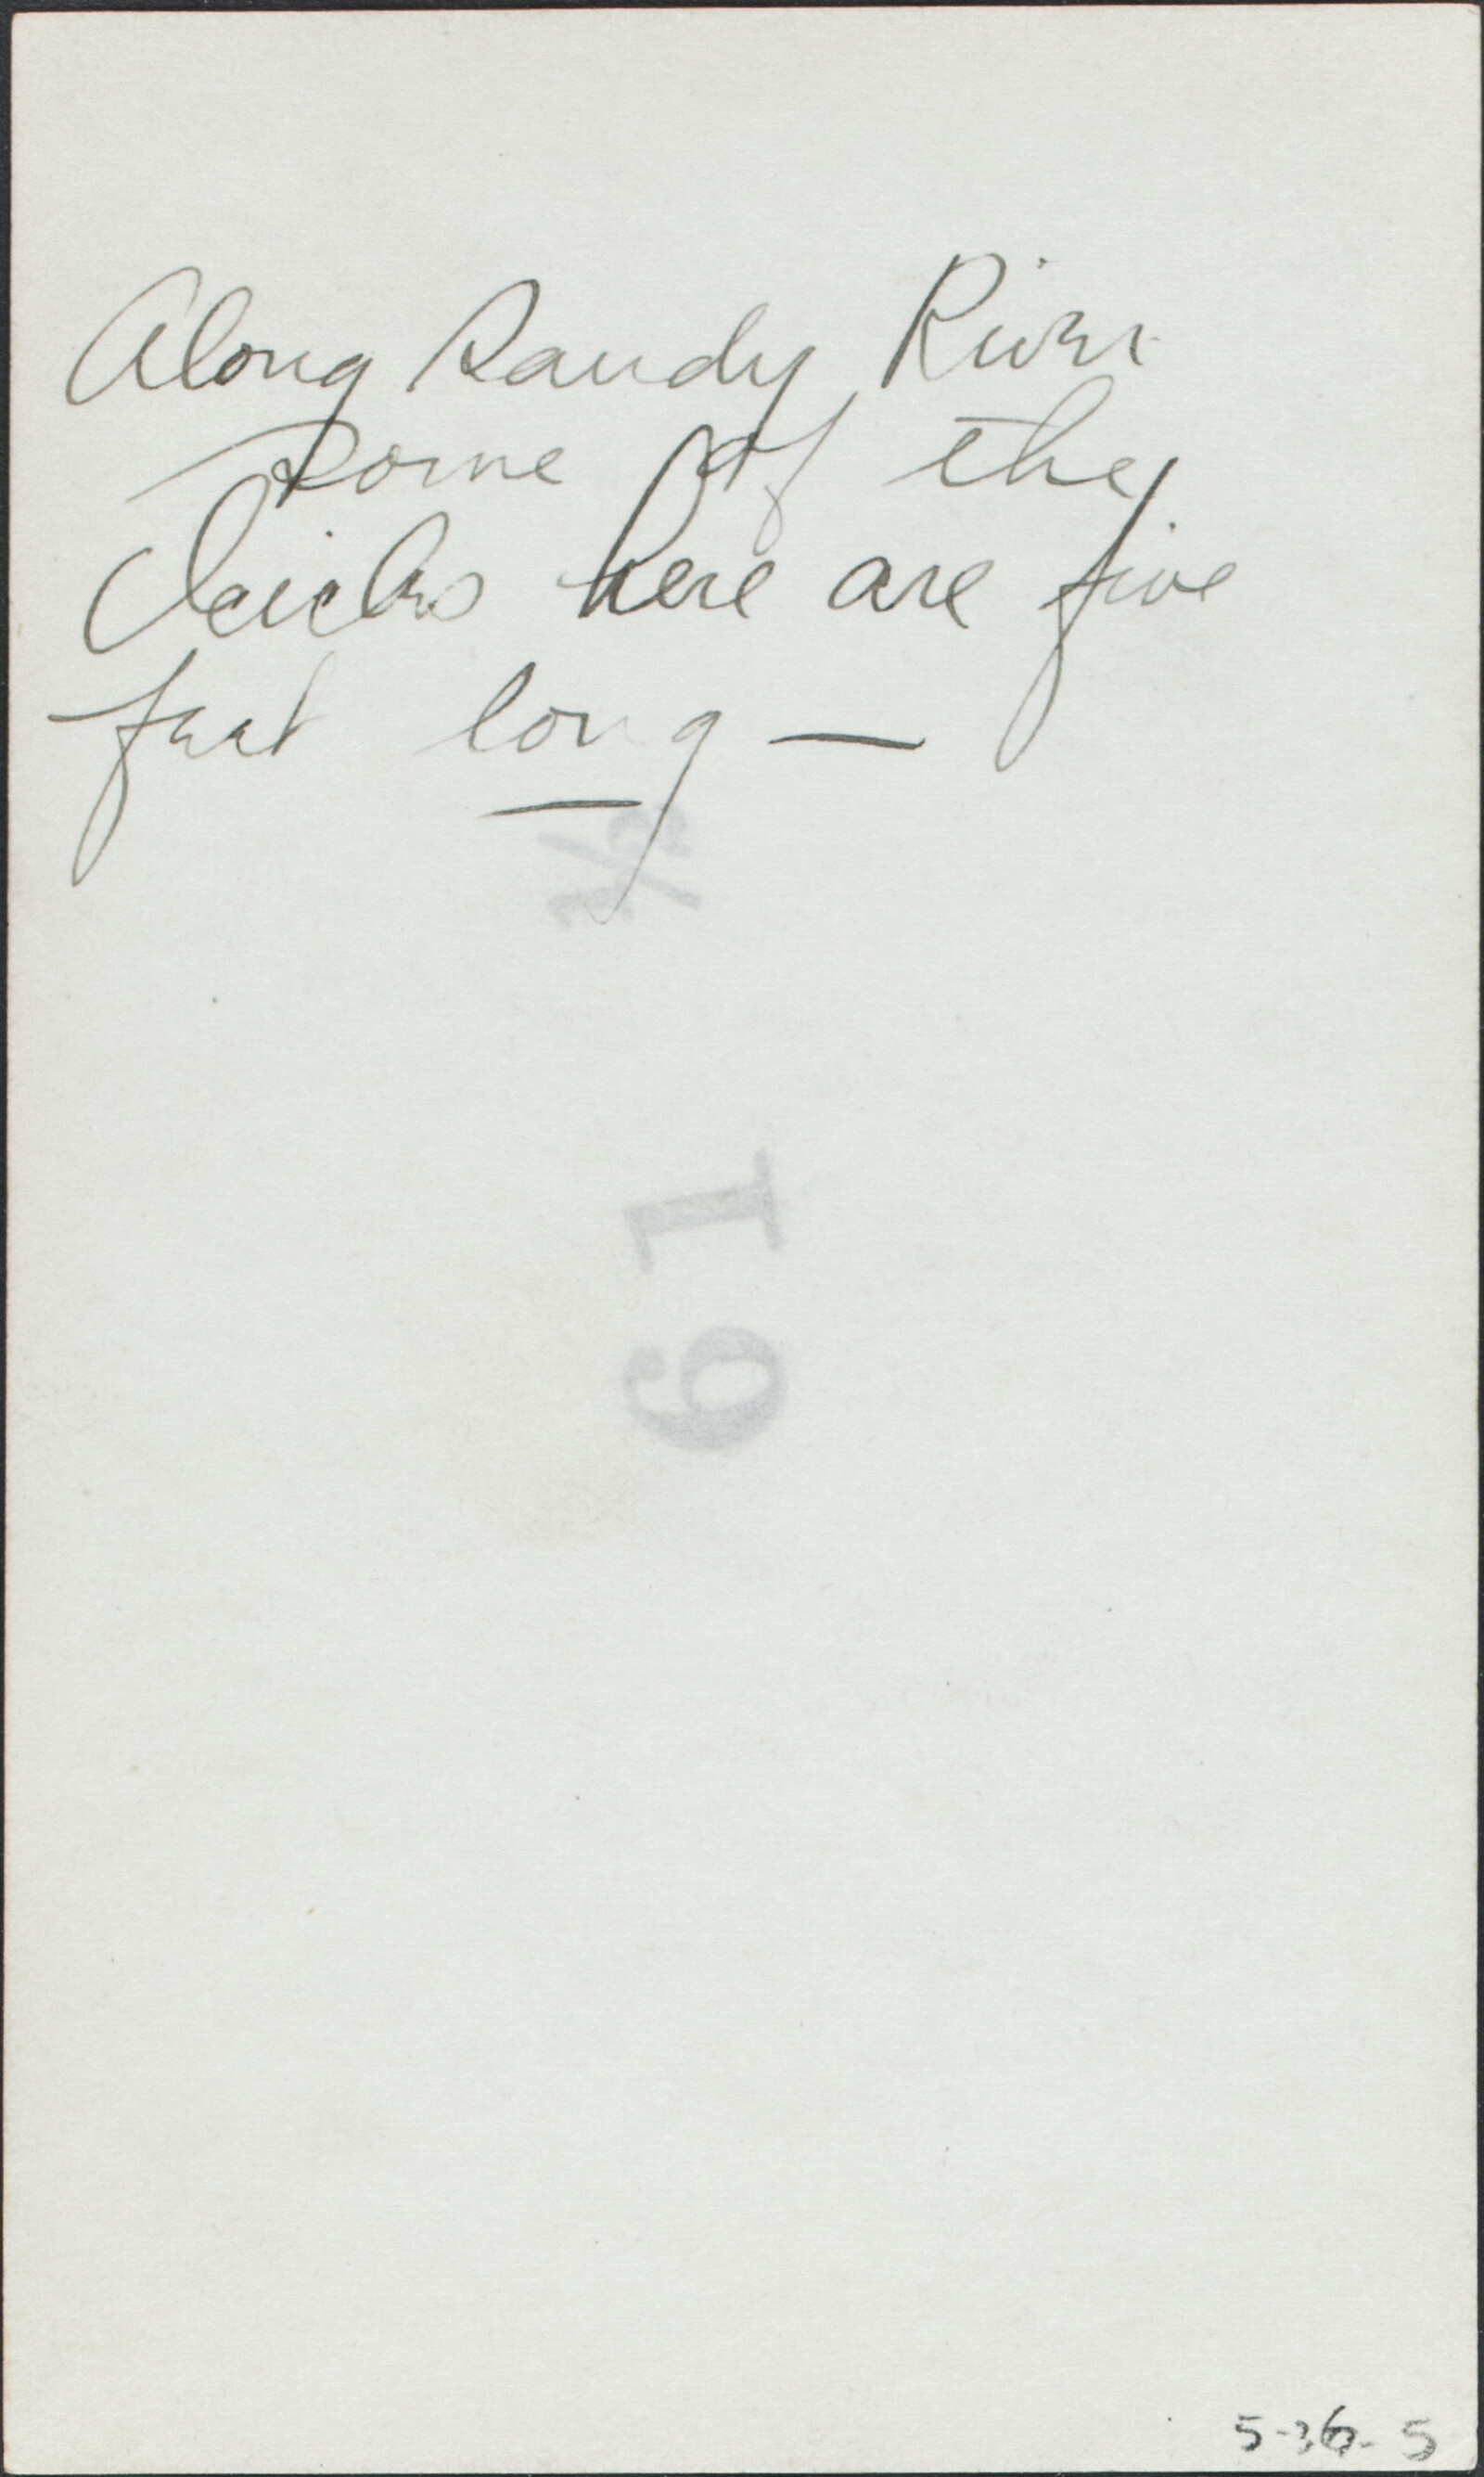 Along Sandy River
some of the
Icicles here are five
feet long —
19
5-36-5